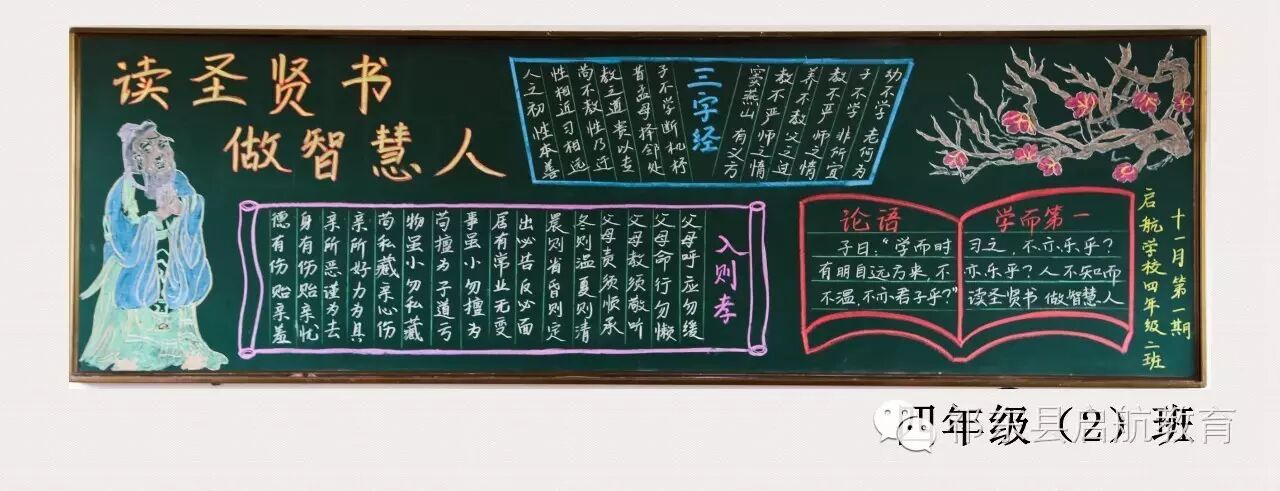 读圣贤书
做智慧人
三字经
人之初 性本善
性相近 习相远
苟不教 性乃迁
教之道 贵以专
昔孟母 择邻处
子不学 断机杼
窦燕山 有义方
养不教 父之过
教不严 师之情
子不学 非所宜
幼不学 老何为
入则孝
父母呼 应勿缓
父母命 行勿懒
父母教 须敬听
父母责 须顺承
冬则温 夏则清
晨则省 昏则定
出必告 反必面
居有常 业无变
事虽小 勿擅为
苟擅为 子道亏
物虽小 勿私藏
苟私藏 亲心伤
亲所好 力为具
亲所恶 谨为去
身有伤 贻亲忧
德有伤 贻亲羞
论语 学而第一
子曰：“学而时习之，不亦乐乎？
有明自远方来，不亦乐乎？人不知而
不温，不亦君子乎？” 读圣贤书 做智慧人
十一月第一期
启航学校四年级二班
四年级（2）班
县启航教育